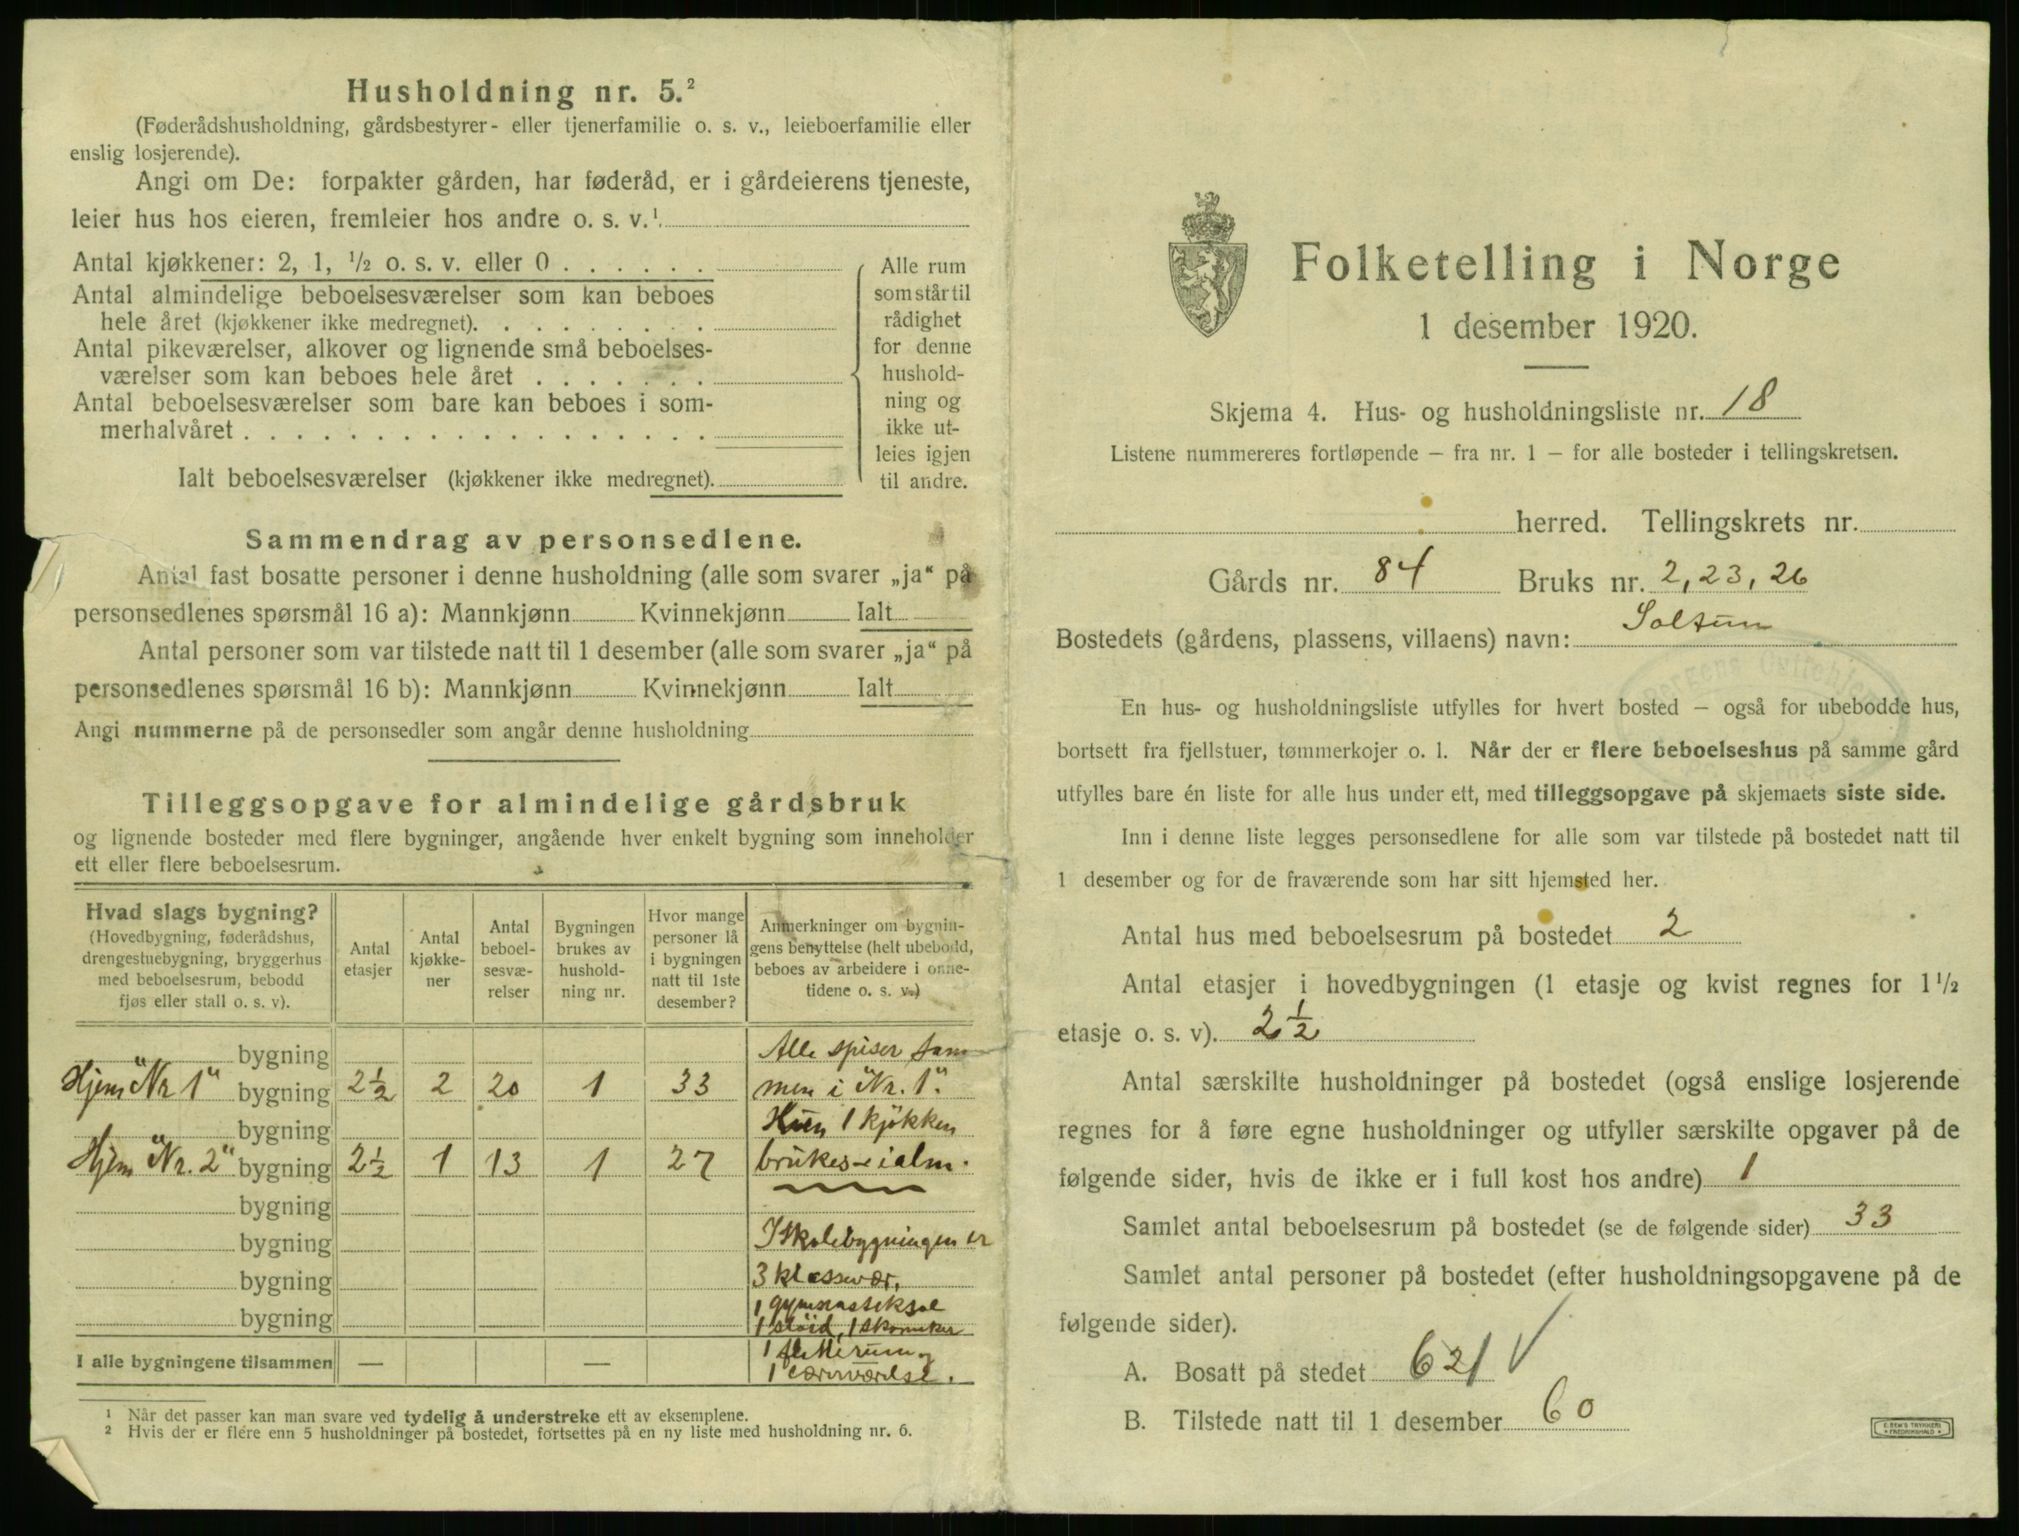 Husholdning nr. 5.²
(Føderådshusholdning, gårdsbestyrer- eller tjenerfamilie o. s. v., leieboerfamilie eller
enslig losjerende).
Angi om De: forpakter gården, har føderåd, er i gårdeierens tjeneste,
leier hus hos eieren, fremleier hos andre o. s. v.¹
Antal kjøkkener: 2, 1, ½ o. s. v. eller 0
Antal almindelige beboelsesværelser som kan beboes
hele året (kjøkkener ikke medregnet).
Antal pikeværelser, alkover og lignende små beboelses-
værelser som kan beboes hele året
Antal beboelsesværelser som bare kan beboes i som-
merhalvåret
Ialt beboelsesværelser (kjøkkener ikke medregnet).
Alle rum
som står til
rådighet
for denne
hushold-
ning og
ikke ut-
leies igjen
til andre.
Sammendrag av personsedlene.
Antal fast bosatte personer i denne husholdning (alle som svarer „ja“ på
personsedlenes spørsmål 16 a): Mannkjønn Kvinnekjønn Ialt
Antal personer som var tilstede natt til 1 desember (alle som svarer „ja“ på
personsedlenes spørsmål 16 b): Mannkjønn Kvinnekjønn Ialt
Angi nummerne på de personsedler som angår denne husholdning
Tilleggsopgave for almindelige gårdsbruk
og lignende bosteder med flere bygninger, angående hver enkelt bygning som inneholder
ett eller flere beboelsesrum.
Hvad slags bygning?
(Hovedbygning, føderådshus,
drengestuebygning, bryggerhus
med beboelsesrum, bebodd
fjøs eller stall o. s. v).
Antal
etasjer
Antal
kjøkke-
ner
Antal
beboel-
sesvæ-
relser
Bygningen
brukes av
hushold-
ning nr.
Hvor mange
personer lå
i bygningen
natt til 1ste
desember?
Anmerkninger om bygnin-
gens benyttelse (helt ubebodd,
beboes av arbeidere i onne-
tidene o. s. v.)
bygning Alle spiser sam
Hjem "Nr 1" bygning 2½ 2 20 1 33 men i "Nr. 1".
bygning 1 kjøkken
Hjem "Nr. 2" bygning 2½ 1 13 1 27 brukes ei alm.
bygning
bygning I Skolebygningen er
bygning 3 klassevær.
bygning 1 gymnastiksal
1 sløid, 1 skomaker
I alle bygningene tilsammen — — 1
1 lærerværelse.
¹ Når det passer kan man svare ved tydelig å understreke ett av eksemplene.
² Hvis der er flere enn 5 husholdninger på bostedet, fortsettes på en ny liste med husholdning nr. 6.
Folketelling i Norge
1 desember 1920.
Skjema 4. Hus- og husholdningsliste nr. 18
Listene nummereres fortløpende – fra nr. 1 – for alle bosteder i tellingskretsen.
herred. Tellingskrets nr.
Gårds nr. 84 Bruks nr. 2, 23, 26
Bostedets (gårdens, plassens, villaens) navn: Soltun
En hus- og husholdningsliste utfylles for hvert bosted – også for ubebodde hus,
bortsett fra fjellstuer, tømmerkojer o. l. Når der er flere beboelseshus på samme gård
utfylles bare én liste for alle hus under ett, med tilleggsopgave på skjemaets siste side.
Inn i denne liste legges personsedlene for alle som var tilstede på bostedet natt til
1 desember og for de fraværende som har sitt hjemsted her.
Antal hus med beboelsesrum på bostedet 2
Antal etasjer i hovedbygningen (1 etasje og kvist regnes for 1½
etasje o. s. v). 2½
Antal særskilte husholdninger på bostedet (også enslige losjerende
regnes for å føre egne husholdninger og utfyller særskilte opgaver på de
følgende sider, hvis de ikke er i full kost hos andre) 1
Samlet antal beboelsesrum på bostedet (se de følgende sider) 33
Samlet antal personer på bostedet (efter husholdningsopgavene på de
følgende sider).
A. Bosatt på stedet 62
B. Tilstede natt til 1 desember 60